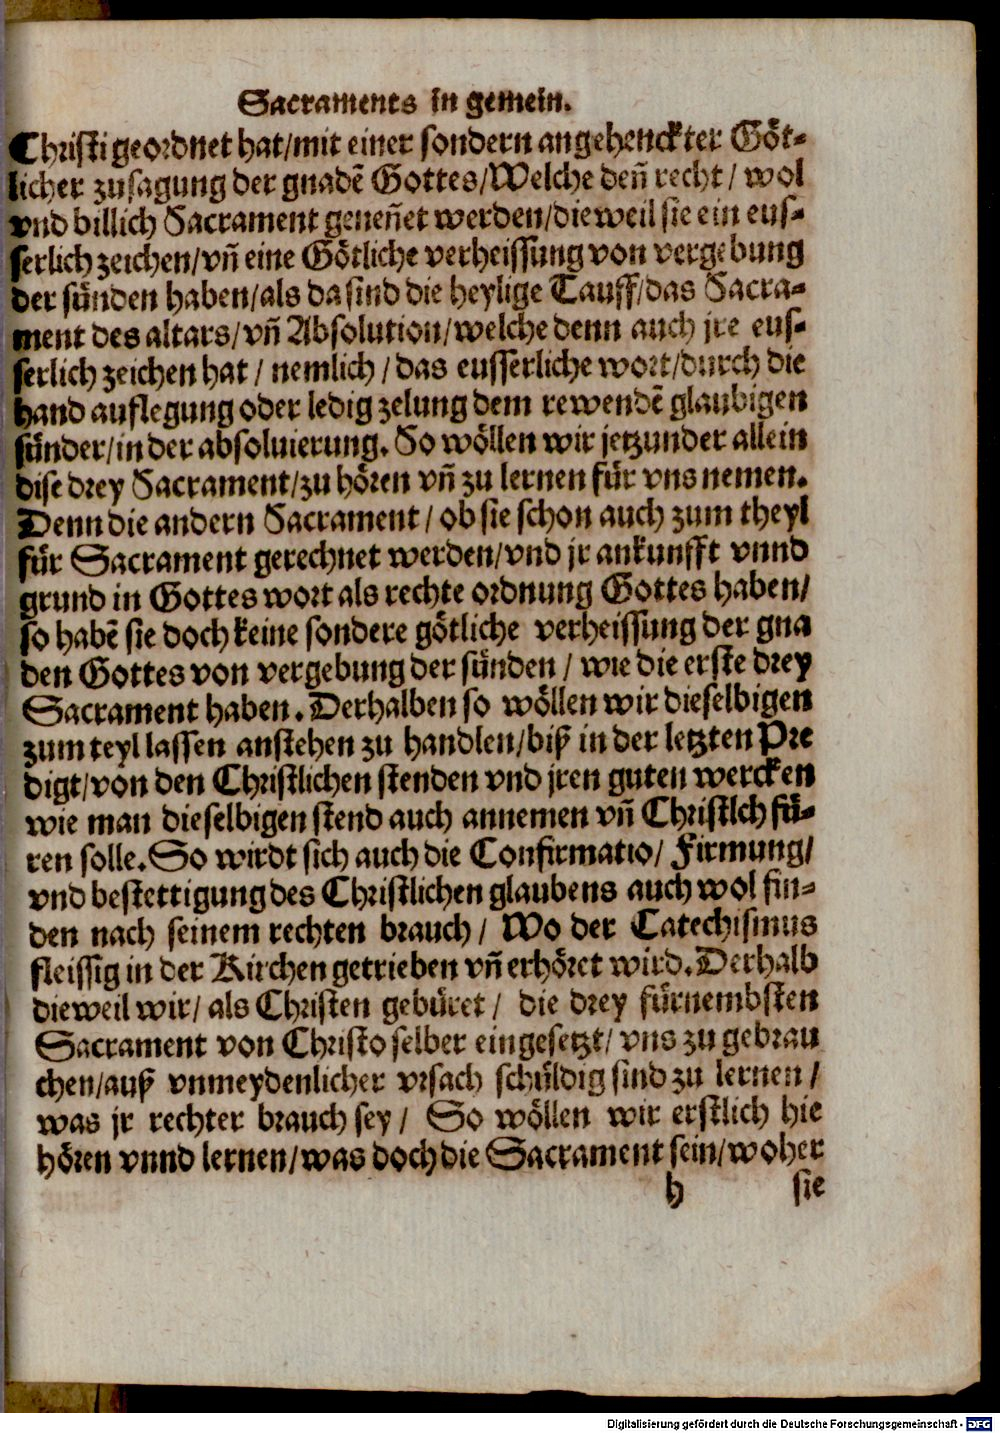 Sacraments in gemein.
Christi geordnet hat/mit einer sondern angehenckter Göt-
licher zusagung der gnadē Gottes/Welche den̄ recht/ wol
vnd billich Sacrament genen̄et werden/dieweil sie ein eus-
serlich zeichen/vn̄ eine Götliche verheissung von vergebung
der sünden haben/als da sind die heylige Tauff/das Sacra-
ment des altars/vn̄ Absolution/welche denn auch jre eus-
serlich zeichen hat/ nemlich/das eusserliche wort/durch die
hand auflegung oder ledig zelung dem rewendē glaubigen
sünder/in der absoluierung. So wöllen wir jetzunder allein
dise drey Sacrament/zu hören vn̄ zu lernen für vns nemen.
Denn die andern Sacrament/ ob sie schon auch zum theyl
für Sacrament gerechnet werden/vnd jr ankunfft vnnd
grund in Gottes wort als rechte ordnung Gottes haben/
so habē sie doch keine sondere götliche verheissung der gna
den Gottes von vergebung der sünden/ wie die erste drey
Sacrament haben. Derhalben so wöllen wir dieselbigen
zum teyl lassen anstehen zu handlen/biß in der letzten Pre
digt/von den Christlichen stenden vnd jren guten wercken
wie man dieselbigen stend auch annemen vn̄ Christlch fü-
ren solle. So wirdt sich auch die Confirmatio/ Firmung/
vnd bestettigung des Christlichen glaubens auch wol fin-
den nach seinem rechten brauch/ Wo der Catechismus
fleissig in der Kirchen getrieben vn̄ erhöret wird. Derhalb
dieweil wir/ als Christen gebüret/ die drey fürnembsten
Sacrament von Christo selber eingesetzt/ vns zu gebrau
chen/auß vnmeydenlicher vrsach schüldig sind zu lernen/
was jr rechter brauch sey/ So wöllen wir erstlich hie
hören vnnd lernen/was doch die Sacrament sein/woher
h sie
Digitalisierung gefördert durch die Deutsche Forschungsgemeinschaft - DFG